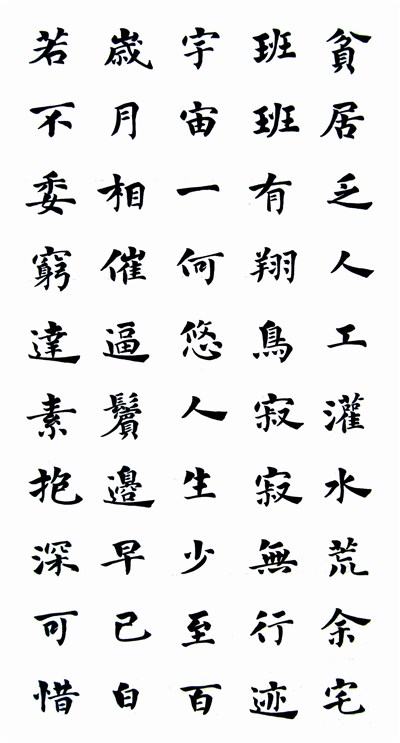 貧居乏人工灌水荒余宅
班班有翔鳥寂寂無行迹
宇宙一何悠人生少至百
歲月相催逼鬢邊早已白
若不委窮達素抱深可惜